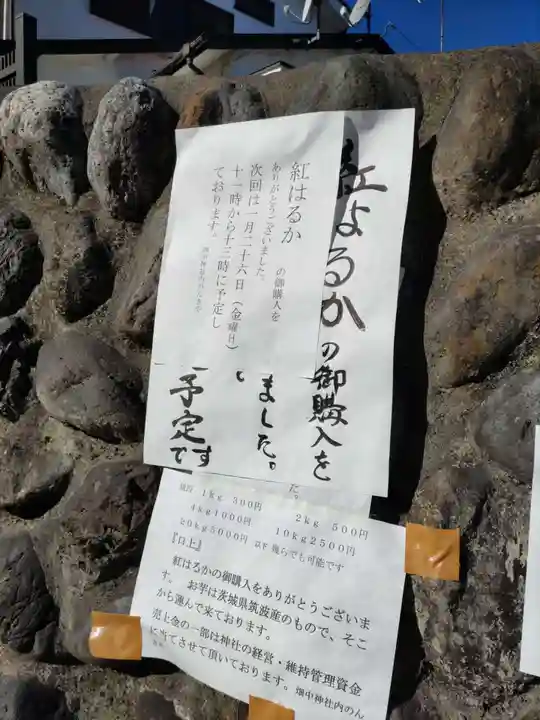 紅はるか
の御購入を
ありがとうございました。
次回は一月二十六日（金曜日）
十一時から十三時に予定し
ております。
はるかの御購入を
ました。
予定です
た。
1kg 300円
2kg 500円
4kg1000円
10kg2500円
20kg5000円 以下 幾らでも可能です
紅はるかの御購入をありがとうございま
す。 お芋は茨城県筑波産のもので、そこ
から運んで来ております。
売上金の一部は神社の経営・維持管理資金
に当てさせて頂いております。
畑中神社内のん